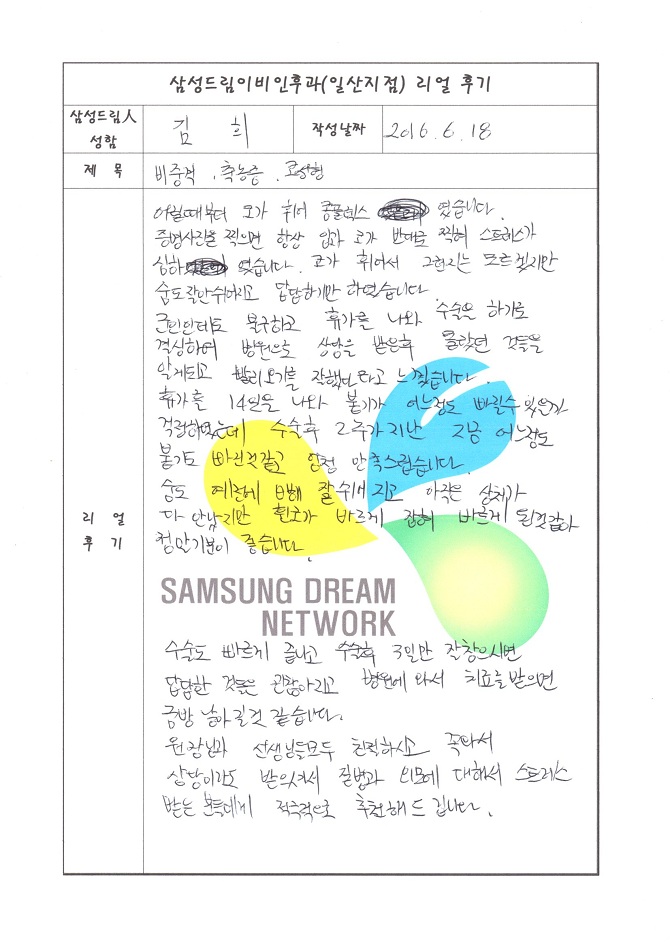 삼성드림이비인후과(일산지점) 리얼 후기
삼성드림人
성함
김 희
작성날짜
2016.6.18
제 목
비중격 , 축농증 , 코성형
어릴때부터 코가 휘어 콤플렉스 였습니다.
증명사진을 찍으면 항상 입과 코가 반대로 찍혀 스트레스가
심하 였습니다. 코가 휘어서 그런지는 모르겠지만
숨도 잘 안쉬어지고 답답하기만 하였습니다
군인인데도 불구하고 휴가를 나와 수술을 하기로
결심하여 병원으로 상담을 받은후 몰랐던 것들을
알게되고 빨리오기를 잘했다라고 느꼈습니다.
휴가를 14일을 나와 붓기가 어느정도 빠질수 있을까
걱정하였는데 수술후 2주가 지난 지금 어느정도
붓기도 빠진것같고 엄청 만족스럽습니다.
숨도 예전에 비해 잘 쉬어 지고 아직은 상처가
다 안남지만 흰코가 바르게 잡혀 바르게 된것같아
정말기분이 좋습니다.
SAMSUNG DREAM
NETWORK
리 얼
후 기
수술도 빠르게 끝나고 수술후 3일만 잘참으시면
답답한 것들은 괜찮아지고 병원에 와서 치료를 받으면
금방 날아갈것 같습니다.
원장님과 선생님들모두 친절하시고 와서
상담이라도 받으셔서 질병과 외모에 대해서 스트레스
받는 분들에게 적극적으로 추천해 드립니다.